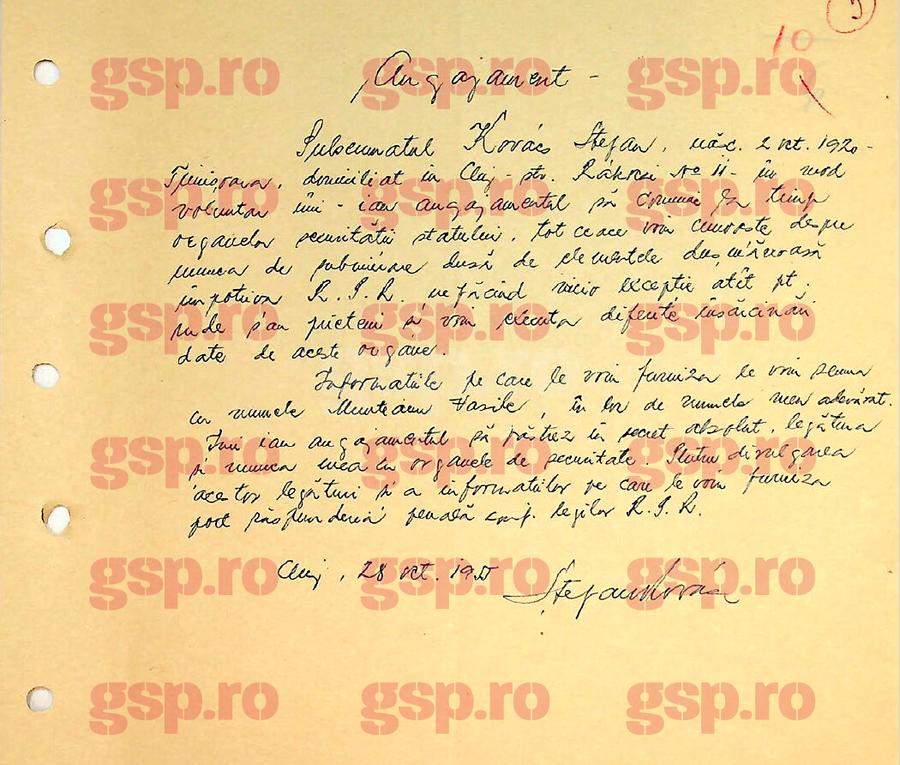 5
10
Angajament -
Subsemnatul Kovács Ștefan, născ. 2 oct. 1920 -
Timișoara, domiciliat în Cluj - str. Rákoczi No 11 - în mod
voluntar îmi - iau angajamentul să comunic la timp
organelor securității statului, tot ceace voi cunoaște despre
munca de subminare dusă de elementele dușmănoasă
împotriva R.P.R. nefăcînd nicio excepție atît pt.
rude s'au prieteni și voi executa diferite însărcinări
date de aceste organe.
Informatiile pe care le voi furniza le voi semna
cu numele Munteanu Vasile, în loc de numele meu adevărat.
Îmi iau angajamentul să păstrez în secret absolut, legătura
și munca mea cu organele de securitate. Pentru divulgarea
acestor legături și a informatiilor pe care le voi furniza
port răspunderea penală conf. legilor R.P.R.
Cluj, 28 oct. 195
Ștefan Kovács
gsp.ro gsp.ro gsp.ro
gsp.ro gsp.ro gsp.ro
gsp.ro gsp.ro gsp.ro
gsp.ro gsp.ro gsp.ro
gsp.ro gsp.ro gsp.ro
gsp.ro gsp.ro gsp.ro